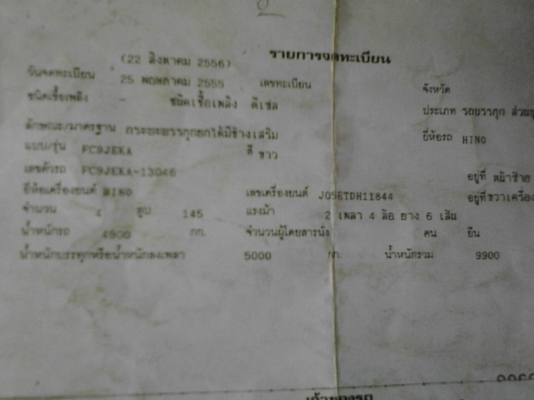 รายการจดทะเบียน
(22 สิงหาคม 2556)
วันจดทะเบียน 25 พฤษภาคม 2555 เลขทะเบียน จังหวัด
ชนิดเชื้อเพลิง - ชนิดเชื้อเพลิง ดีเซล ประเภท รถบรรทุก
ลักษณะ/มาตรฐาน กระบะบรรทุกยกได้มีข้างเสริม ยี่ห้อรถ HINO
แบบ/รุ่น FC9JEKA สี ขาว
เลขตัวรถ FC9JEKA-13046 อยู่ที่ หน้าซ้าย
ยี่ห้อเครื่องยนต์ HINO เลขเครื่องยนต์ J05ETDH11844 อยู่ที่ขวาเครื่อง
จำนวน 4 สูบ 145 แรงม้า 2 เพลา 4 ล้อ ยาง 6 เส้น
น้ำหนักรถ 4900 กก. จำนวนผู้โดยสารนั่ง คน ยืน
น้ำหนักบรรทุกหรือน้ำหนักลงเพลา 5000 กก. น้ำหนักรวม 9900
เจ้าของรถ